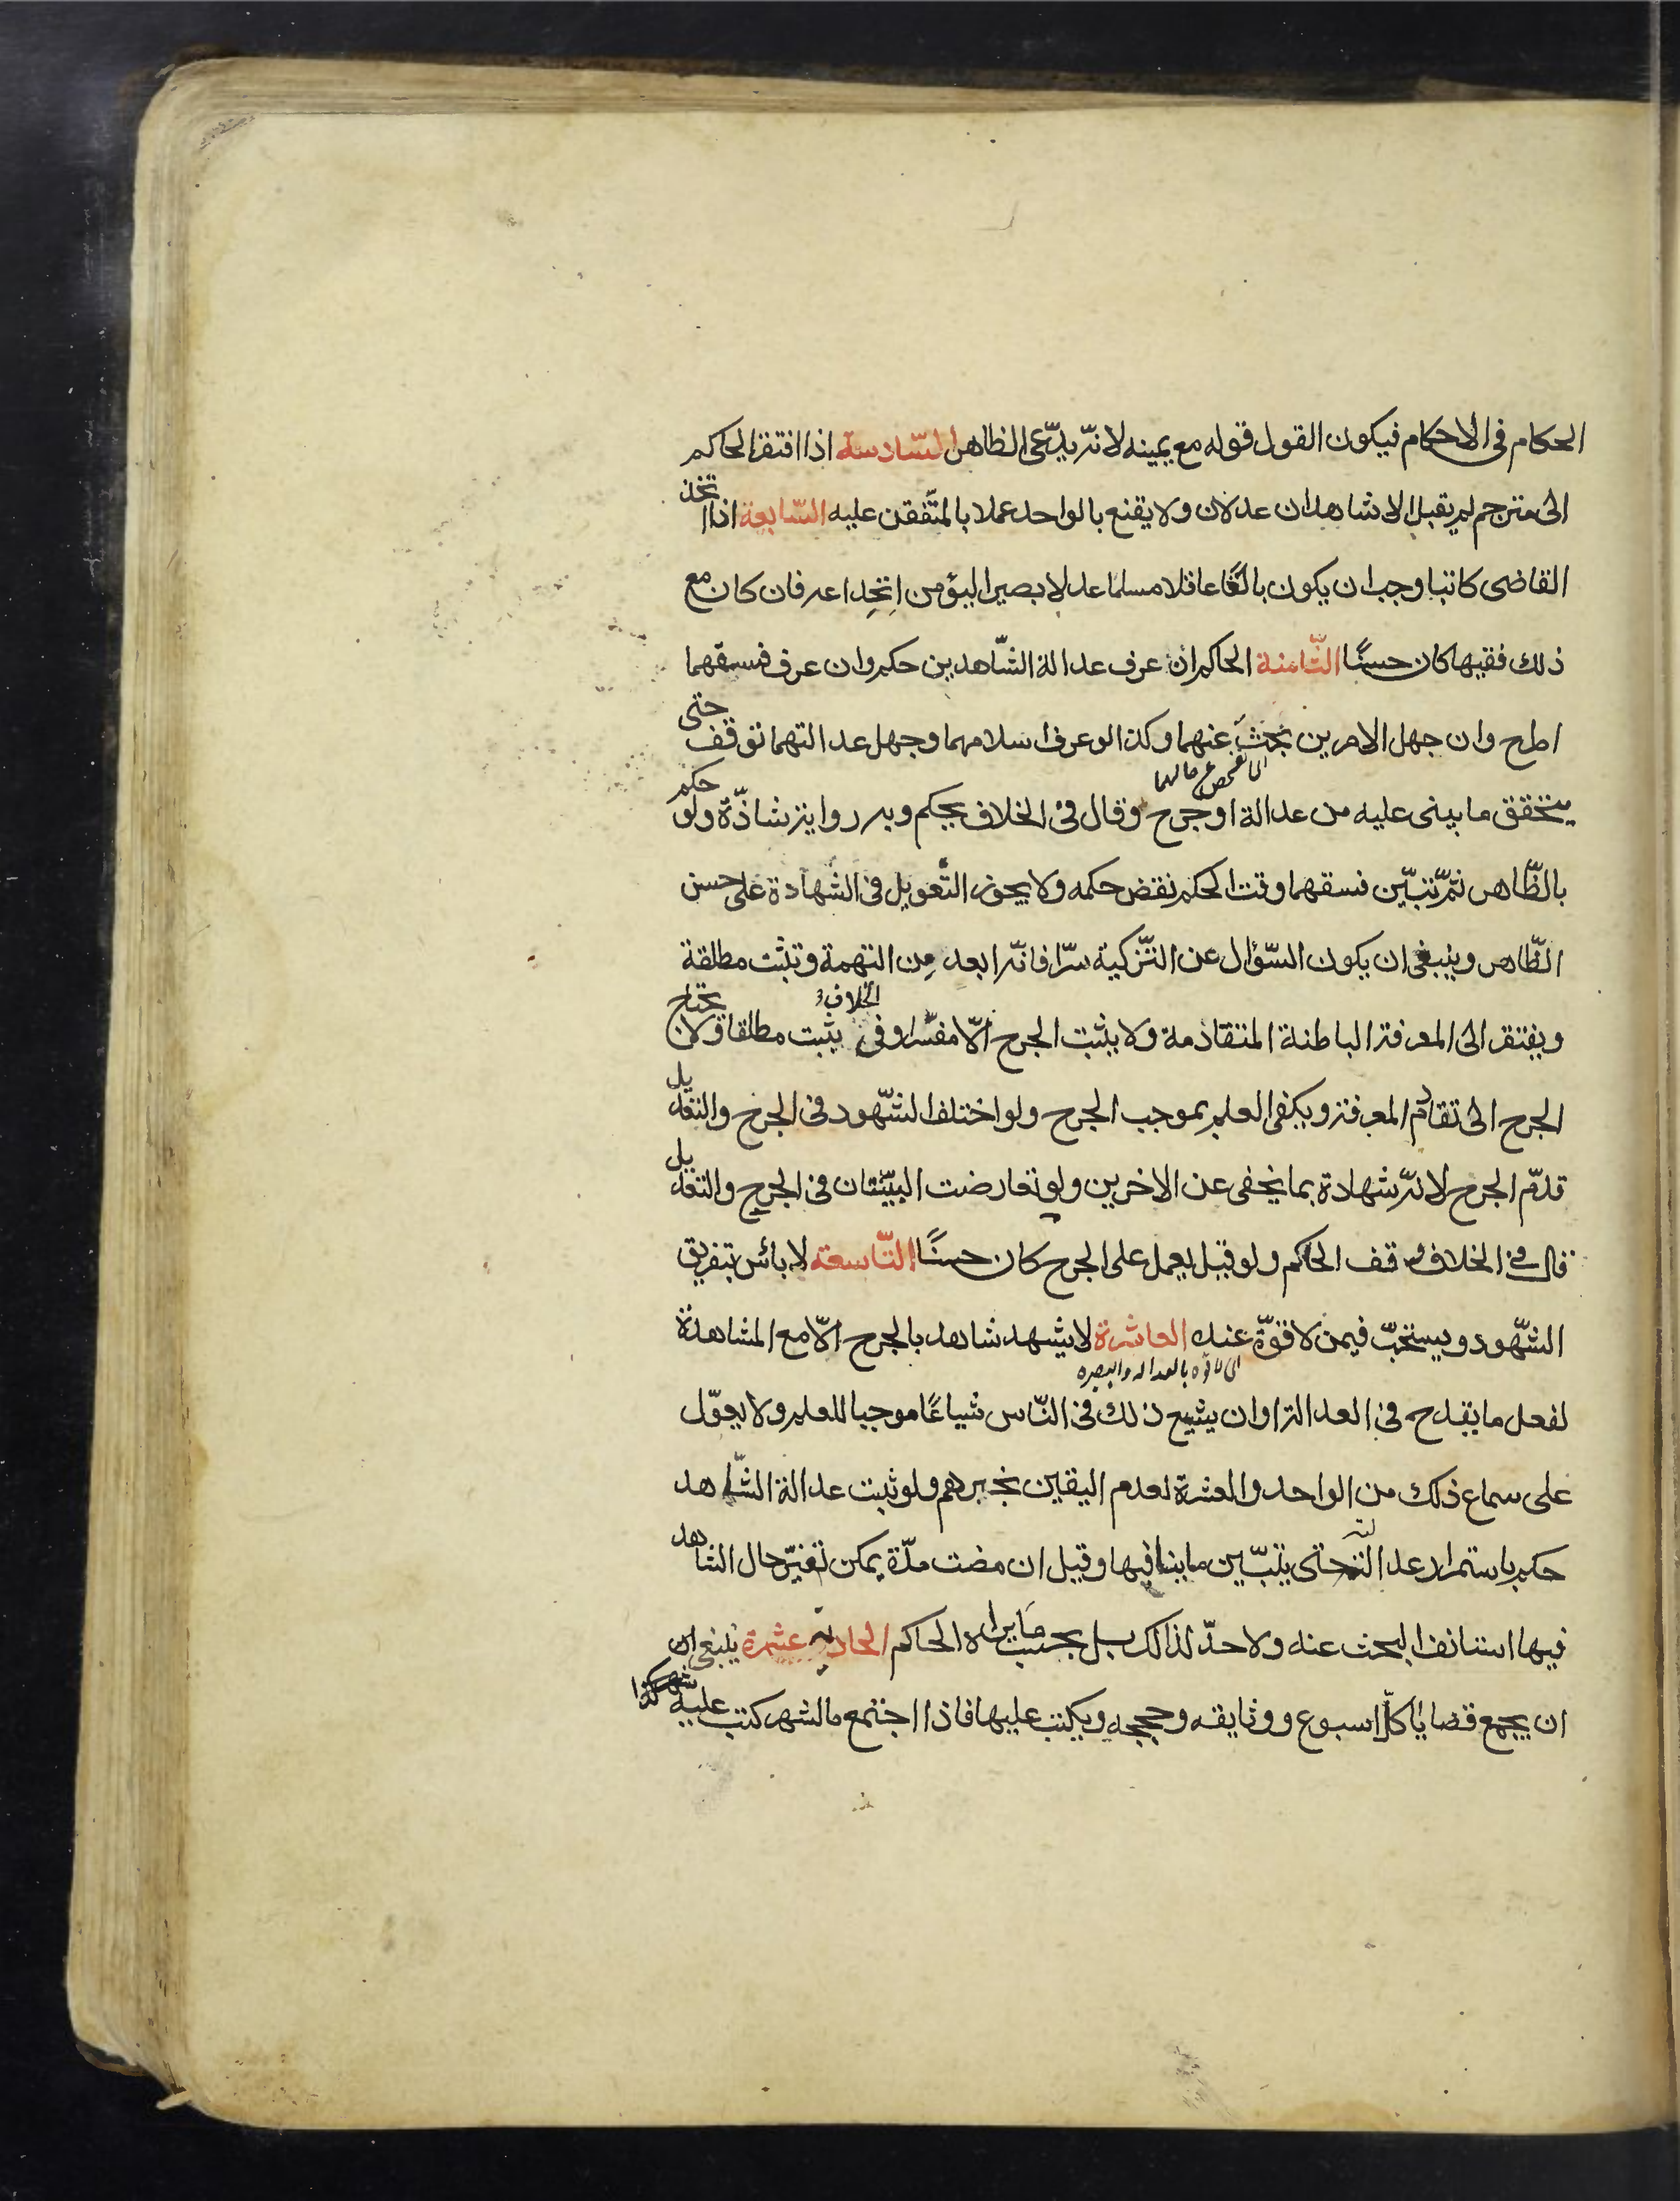 الحكام فى الاحكام فيكون القول قوله مع يمينه لانه يدّعى الظاهر السّادسة اذا افتقر الحاكم
الى مترجم لم يقبل الا شاهدان عدلان ولا يقنع بالواحد عملا بالمتّفق عليه السّابعة اذا اتخذ
القاضى كاتبا وجب ان يكون بالغًا عاقلا مسلما عدلا بصيرا ليؤمن انخداعه فان كان مع
ذلك فقيها كان حسنًا الثّامنة الحاكم ان عرف عدالة الشّاهدين حكم وان عرف فسقهما
اطرح وان جهل الامرين بحث عنهما وكذا لو عرف اسلامهما وجهل عدالتهما توقف حتى
اى تفحص عن حالهما
يتحقق ما يبنى عليه من عدالة او جرح وقال فى الخلاف يحكم وبه رواية شاذّة ولو حكم
بالظّاهر ثمّ تبيّن فسقهما وقت الحكم نقض حكمه ولا يجوز التّعويل فى الشّهادة على حسن
الظّاهر وينبغى ان يكون السّؤال عن التّزكية سرّا فانّه ابعد من التهمة وتثبت مطلقة
ويفتقر الى المعرفة الباطنة المتقادمة ولا يثبت الجرح الّا مفسّرا وفى الخلاف يثبت مطلقا ولا يحتاج
الجرح الى تقادم المعرفة ويكفى العلم بموجب الجرح ولو اختلف الشّهود فى الجرح والتعديل
قدّم الجرح لانّه شهادة بما يخفى عن الاخرين ولو تعارضت البيّنتان فى الجرح والتعديل
قال فى الخلاف وقف الحاكم ولو قيل يعمل على الجرح كان حسنًا التّاسعة لا بأس بتفريق
الشّهود ويستحبّ فيمن لا قوّة عنده العاشرة لا يشهد شاهد بالجرح الّا مع المشاهدة
اى لا قوه بالعداله والبصيره
لفعل ما يقدح فى العدالة او ان يشيع ذلك فى النّاس شياعًا موجبا للعلم ولا يعوّل
على سماع ذلك من الواحد والعشرة لعدم اليقين بخبرهم ولو ثبت عدالة الشّاهد
حكم باستمرار عدالته حتى يتبّين ما ينافيها وقيل ان مضت مدّة يمكن تغيّر حال الشاهد
فيها استانف البحث عنه ولا حدّ لذلك بل بحسب ما يراه الحاكم الحادية عشرة ينبغى ان
ان يجمع قضايا كلّ اسبوع ووثايقه وحججه ويكتب عليها فاذا اجتمع ما لشهر كتب عليه شهر كذا